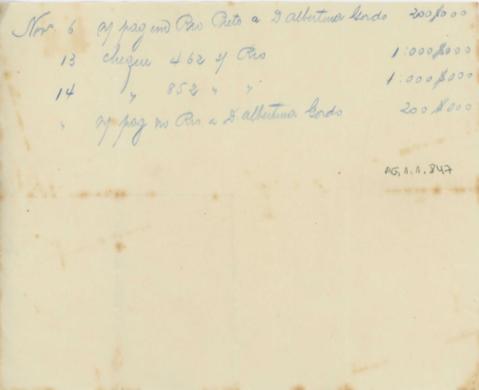 Nov 6 n/ pag no Rio Preto a D Albertina Gordo 200$000
13 cheque 462 s/ Rio 1:000$000
14 " 852 " " 1:000$000
" n/ pag no Rio a D. Albertina Gordo 200$000
AG.1.1.847